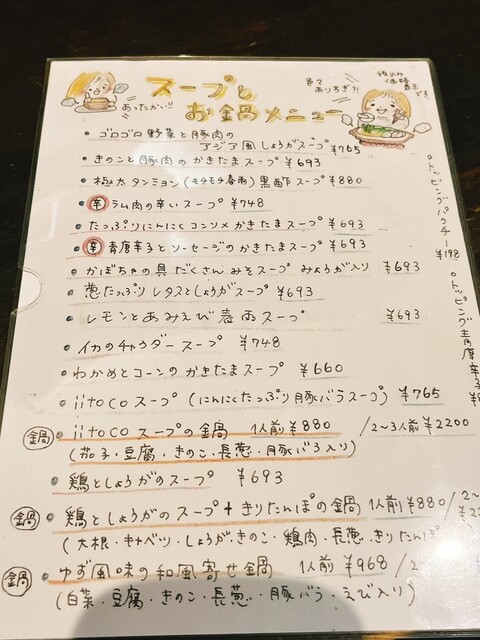 あったかい!!
スープと
お鍋メニュー
色々
ありすぎ?!
税込み
価格
表示
です
・ゴロゴロ野菜と豚肉の
アジア風しょうがスープ ¥765
・きのこと豚肉のかきたまスープ ¥693
・極太タンミョン(モチモチ春雨)黒酢スープ ¥880
・辛 ラム肉の辛いスープ ¥748
たっぷりにんにくコンソメかきたまスープ ¥693
・辛 青唐辛子とソーセージのかきたまスープ ¥693
・かぼちゃの具だくさんみそスープ みょうが入り ¥693
・葱たっぷりレタスとしょうがスープ ¥693
・レモンとあみえび春雨スープ ¥693
・イカのチャウダースープ ¥748
・わかめとコーンのかきたまスープ ¥660
・iitoco スープ (にんにくたっぷり豚バラスープ) ¥765
鍋 ・iitoco スープの鍋 1人前 ¥880 /2~3人前 ¥2200
(茄子・豆腐・きのこ・長葱・豚バラ入り)
・鶏としょうがのスープ ¥693
鍋 ・鶏としょうがのスープ+きりたんぽの鍋 1人前 ¥880/2~
(大根・キャベツ・しょうが・きのこ・鶏肉・長葱・きりたんぽ
鍋 ・ゆず風味の和風寄せ鍋 1人前 ¥968 /2
(白菜・豆腐・きのこ・長葱・豚バラ・えび入り)
・トッピングパクチー ¥198
・トッピング青唐辛子